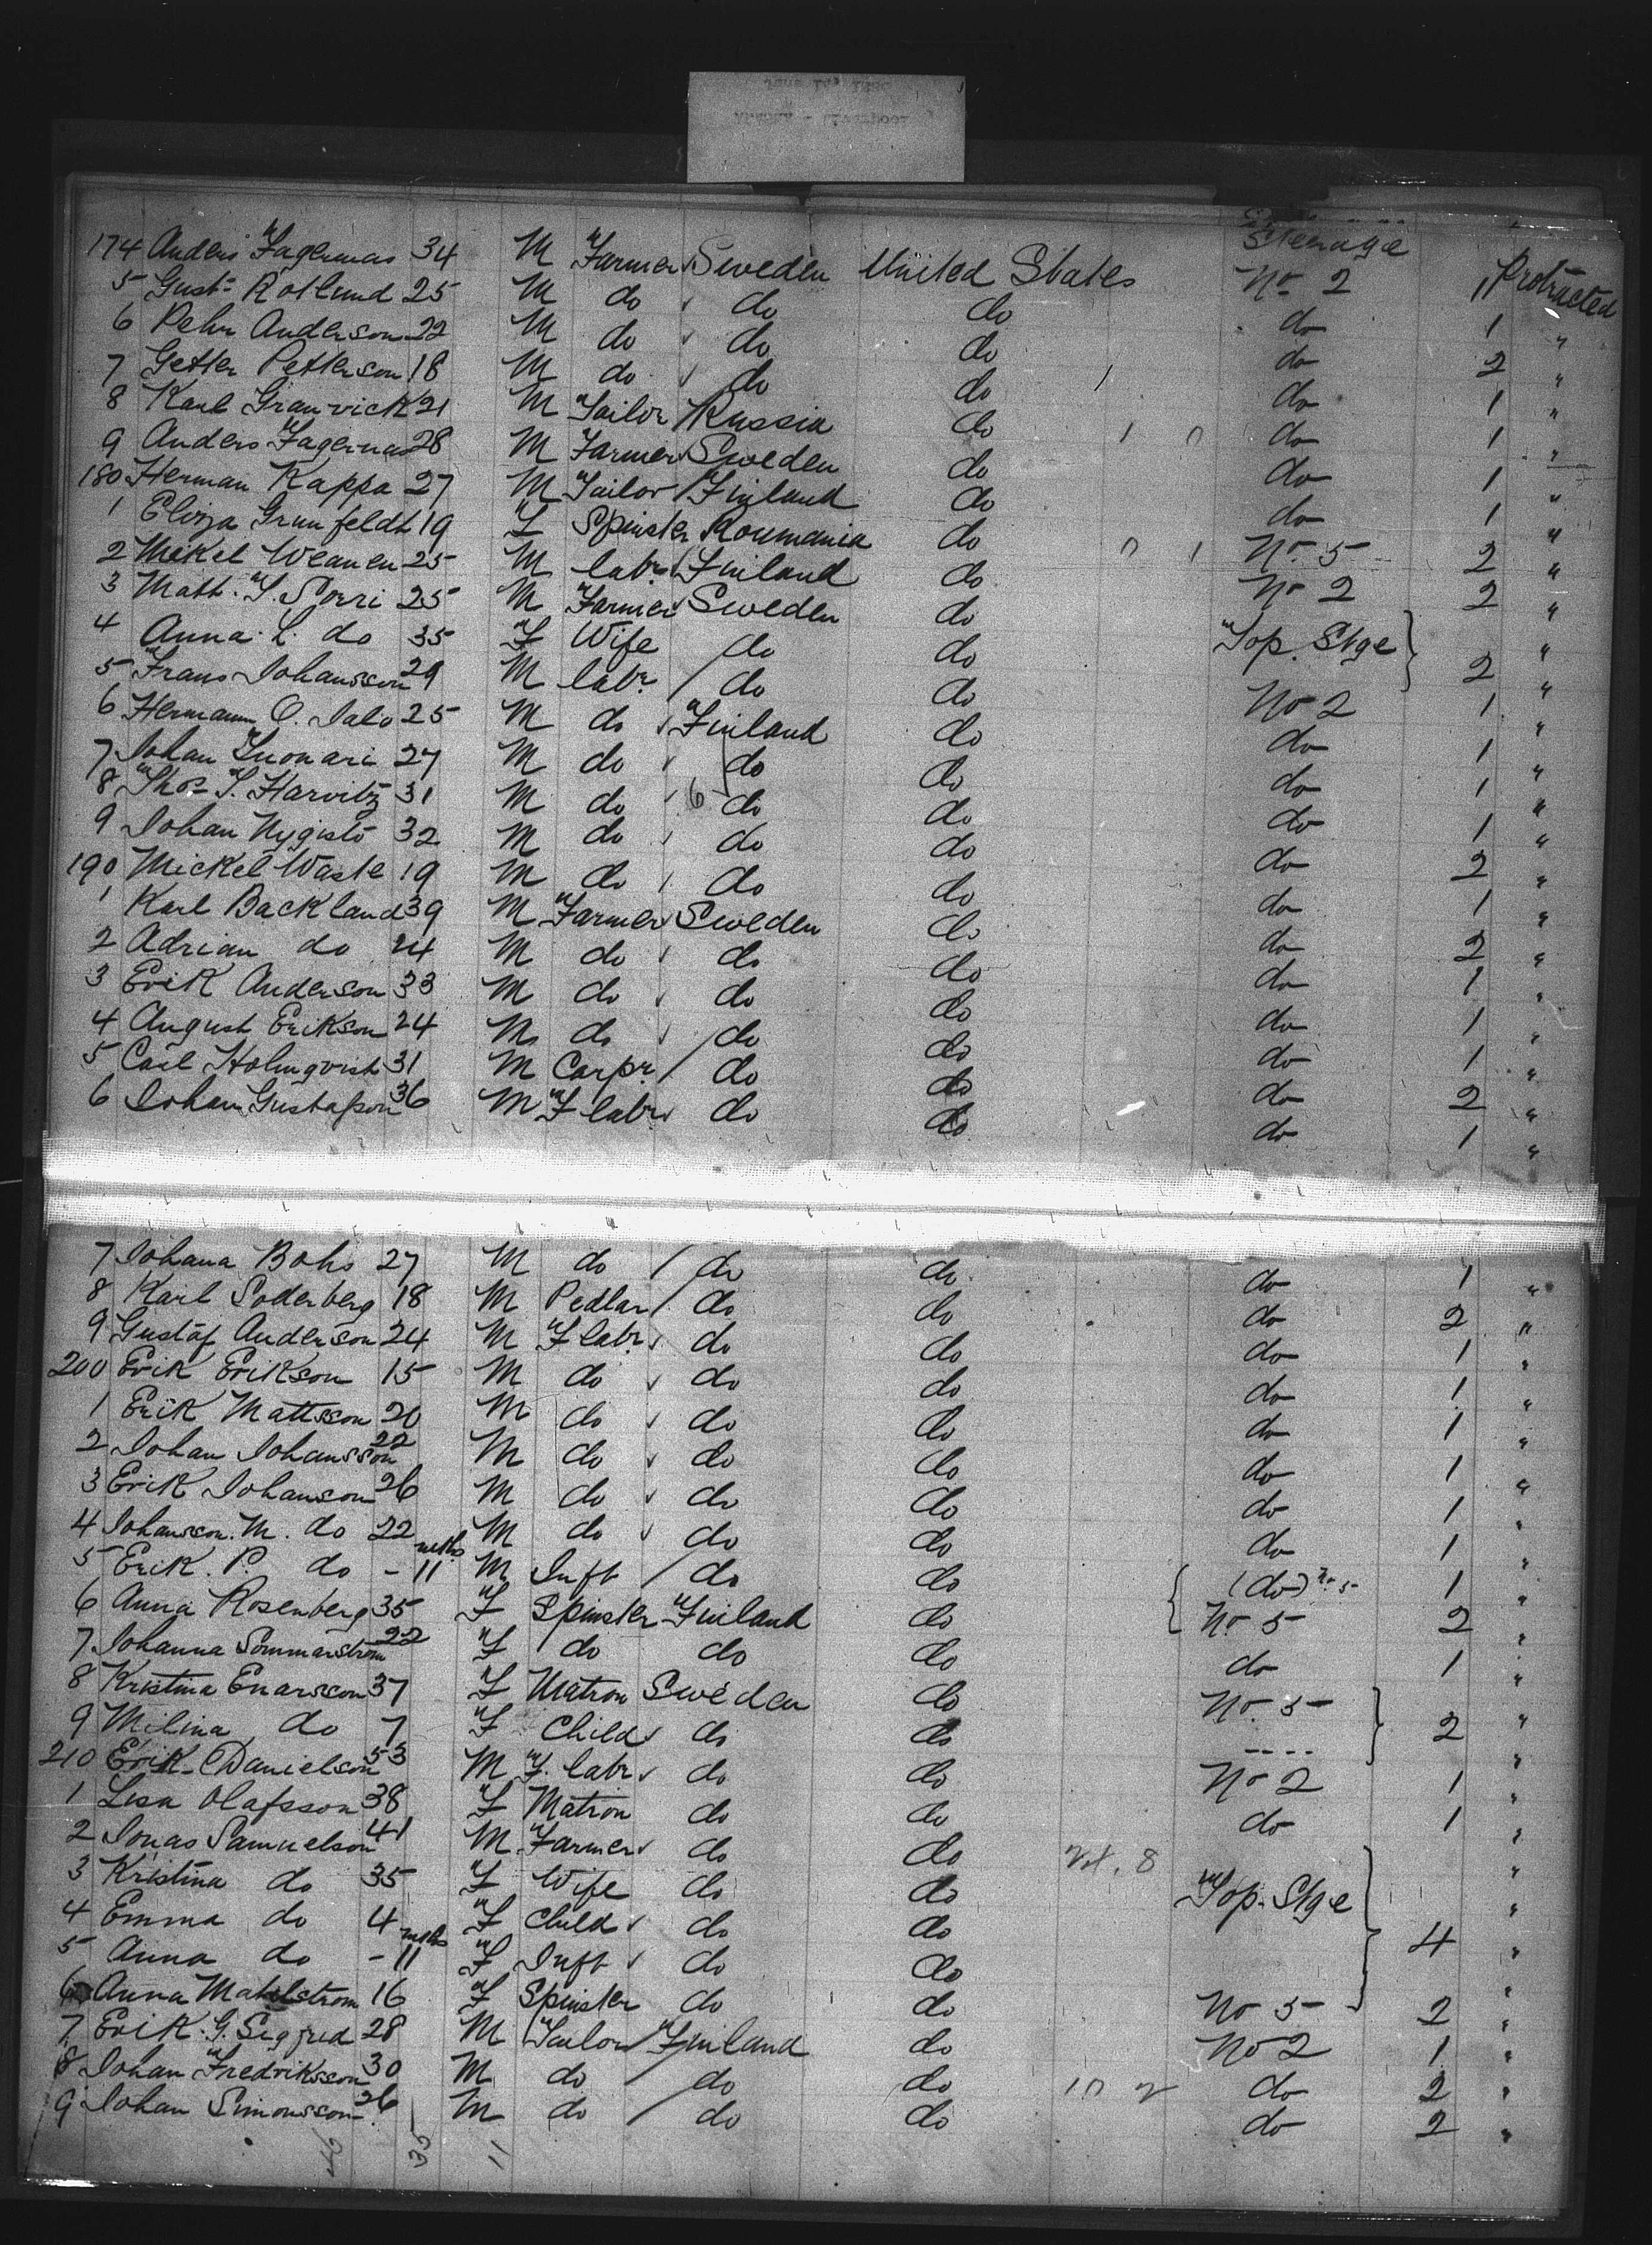 Steerage
174 Anders Fagernas 34 M Farmer Sweden United States No 2 1 Protracted
5 Gust. Rotlund 25 M do do do do 1 "
6 Pehr Anderson 22 M do do do do 2 "
7 Getter Petterson 18 M do do do do 1 "
8 Karl Granvick 21 M Tailor Russia do do 1 "
9 Anders Fagernas 28 M Farmer Sweden do do 1 "
180 Herman Kappa 27 M Tailor Finland do do 1 "
1 Elviza Grunfeldt 19 F Spinster Roumania do No 5 2 "
2 Mickel Weanen 25 M labr Finland do No 2 2 "
3 Matt. I. Sorri 25 M Farmer Sweden do Top. Stge "
4 Anna. L. do 35 F Wife do do 2 "
5 Frans Johansson 29 M labr do do No 2 1 "
6 Hermann O. Jalo 25 M do Finland do do 1 "
7 Johan Luomari 27 M do do do do 1 "
8 Thos I. Harvitz 31 M do 6 do do do 1 "
9 Johan Nygisto 32 M do do do do 2 "
190 Mickel Waste 19 M do do do do 1 "
1 Karl Backland 39 M Farmer Sweden do do 2 "
2 Adrian do 24 M do do do do 1 "
3 Erik Anderson 33 M do do do do 1 "
4 August Erikson 24 M do do do do 1 "
5 Carl Holmqvist 31 M Carpr do do do 2 "
6 Johan Gustafson 36 M F labr do do do 1 "
7 Johana Bohs 27 M do do do do 1 "
8 Karl Soderberg 18 M Pedlar do do do 2 "
9 Gustaf Anderson 24 M F labr do do do 1 "
200 Erik Erikson 15 M do do do do 1 "
1 Erik Mattsson 20 M do do do do 1 "
2 Johan Johansson 22 M do do do do 1 "
3 Erik Johanson 26 M do do do do 1 "
4 Johansson. M. do 22 M do do do do 1 "
5 Erik. P. do - 11 mths M Inft do do (do) No 5 1 "
6 Anna Rosenberg 35 F Spinster Finland do No 5 2 "
7 Johanna Sommarstrom 22 F do do do do 1 "
8 Kristina Enarsson 37 F Matron Sweden do No. 5 "
9 Milina do 7 F Child do do 2 "
210 Erik Danielson 53 M F. labr do do No 2 1 "
1 Lisa Olafsson 38 F Matron do do do 1 "
2 Jonas Samuelson 41 M Farmer do do "
3 Kristina do 35 F Wife do do Top. Stge "
4 Emma do 4 F Child do do 4 "
5 Anna do - 11 mths F Inft do do "
6 Anna Mahlstrom 16 F Spinster do do No 5 2 "
7 Erik. G. Segfrid 28 M Tailor Finland do No 2 1 "
8 Johan Fredriksson 30 M do do do do 2 "
9 Johan Simonsson 26 M do do do do 2 "